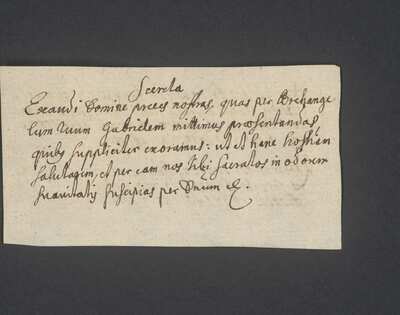 Secreta
Exaudi Domine preces nostras, quas per Archange
lum tuum Gabrielem mittimus præsentandas,
quibs suppliciter exoramus: ut et hanc hostiam
salutarem, et per eam nos tibi sacratos in odorem
suavitatis suscipias per Dnum &.